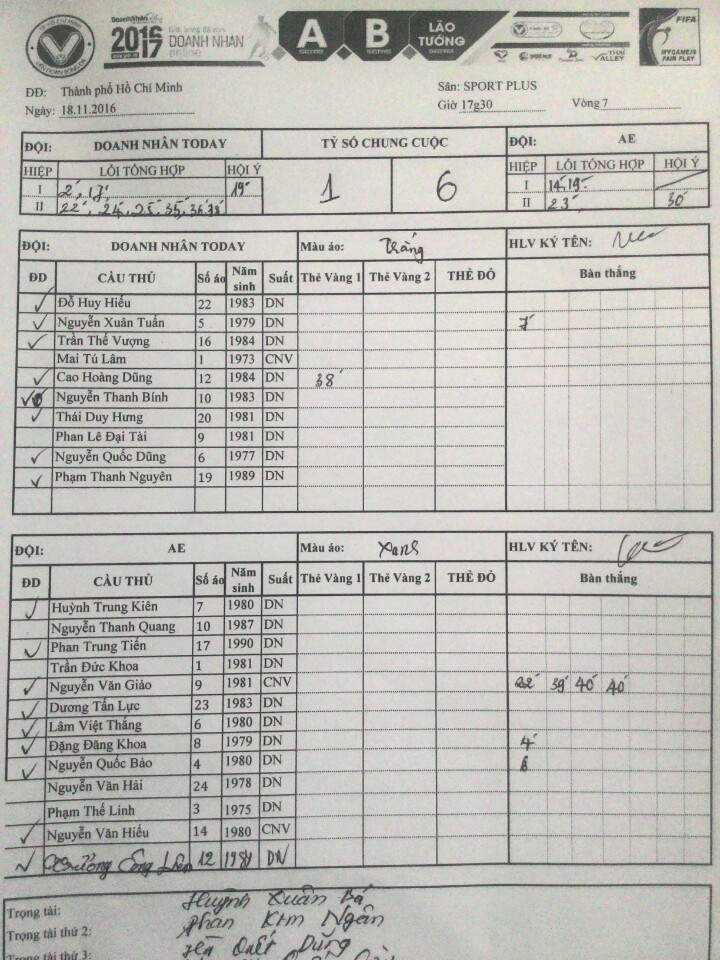 TP HỒ CHÍ MINH
LIÊN ĐOÀN BÓNG ĐÁ
DoanhNhân
2016
2017
Giải bóng đá mini
DOANH NHÂN
online
A
SERIES
B
SERIES
LÃO
TƯỚNG
VALLEY
FIFA
MY GAME IS
FAIR PLAY
ĐĐ: Thành phố Hồ Chí Minh Sân: SPORT PLUS
Ngày: 18.11.2016 Giờ 17g30 Vòng 7
ĐỘI: DOANH NHÂN TODAY TỶ SỐ CHUNG CUỘC ĐỘI: AE
HIỆP LỖI TỔNG HỢP HỘI Ý 1 6 HIỆP LỖI TỔNG HỢP HỘI Ý
I 2' 17' 19' I 14' 19'
II 22' 24' 25' 35' 36' 38' II 23' 30'
ĐỘI: DOANH NHÂN TODAY Màu áo: Trắng HLV KÝ TÊN:
ĐD CẦU THỦ Số áo Năm sinh Suất Thẻ Vàng 1 Thẻ Vàng 2 THẺ ĐỎ Bàn thắng
Đỗ Huy Hiếu 22 1983 DN
Nguyễn Xuân Tuấn 5 1979 DN 7'
Trần Thế Vượng 16 1984 DN
Mai Tú Lâm 1 1973 CNV
Cao Hoàng Dũng 12 1984 DN 38'
Nguyễn Thanh Bính 10 1983 DN
Thái Duy Hưng 20 1981 DN
Phan Lê Đại Tài 9 1981 DN
Nguyễn Quốc Dũng 6 1977 DN
Phạm Thanh Nguyên 19 1989 DN
ĐỘI: AE Màu áo: Xanh HLV KÝ TÊN:
ĐD CẦU THỦ Số áo Năm sinh Suất Thẻ Vàng 1 Thẻ Vàng 2 THẺ ĐỎ Bàn thắng
Huỳnh Trung Kiên 7 1980 DN
Nguyễn Thanh Quang 10 1987 DN
Phan Trung Tiến 17 1990 DN
Trần Đức Khoa 1 1981 DN
Nguyễn Văn Giảo 9 1981 CNV 22' 39' 40' 40'
Dương Tấn Lực 23 1983 DN
Lâm Việt Thắng 6 1980 DN
Đặng Đăng Khoa 8 1979 DN 4'
Nguyễn Quốc Bảo 4 1980 DN
Nguyễn Văn Hải 24 1978 DN
Phạm Thế Linh 3 1975 DN
Nguyễn Văn Hiếu 14 1980 CNV
Công 12 1981 DN
Trọng tài: Huỳnh Xuân Bá
Trọng tài thứ 2: Phan Kim Ngân
Trọng tài thứ 3: Hà Quốc Dũng